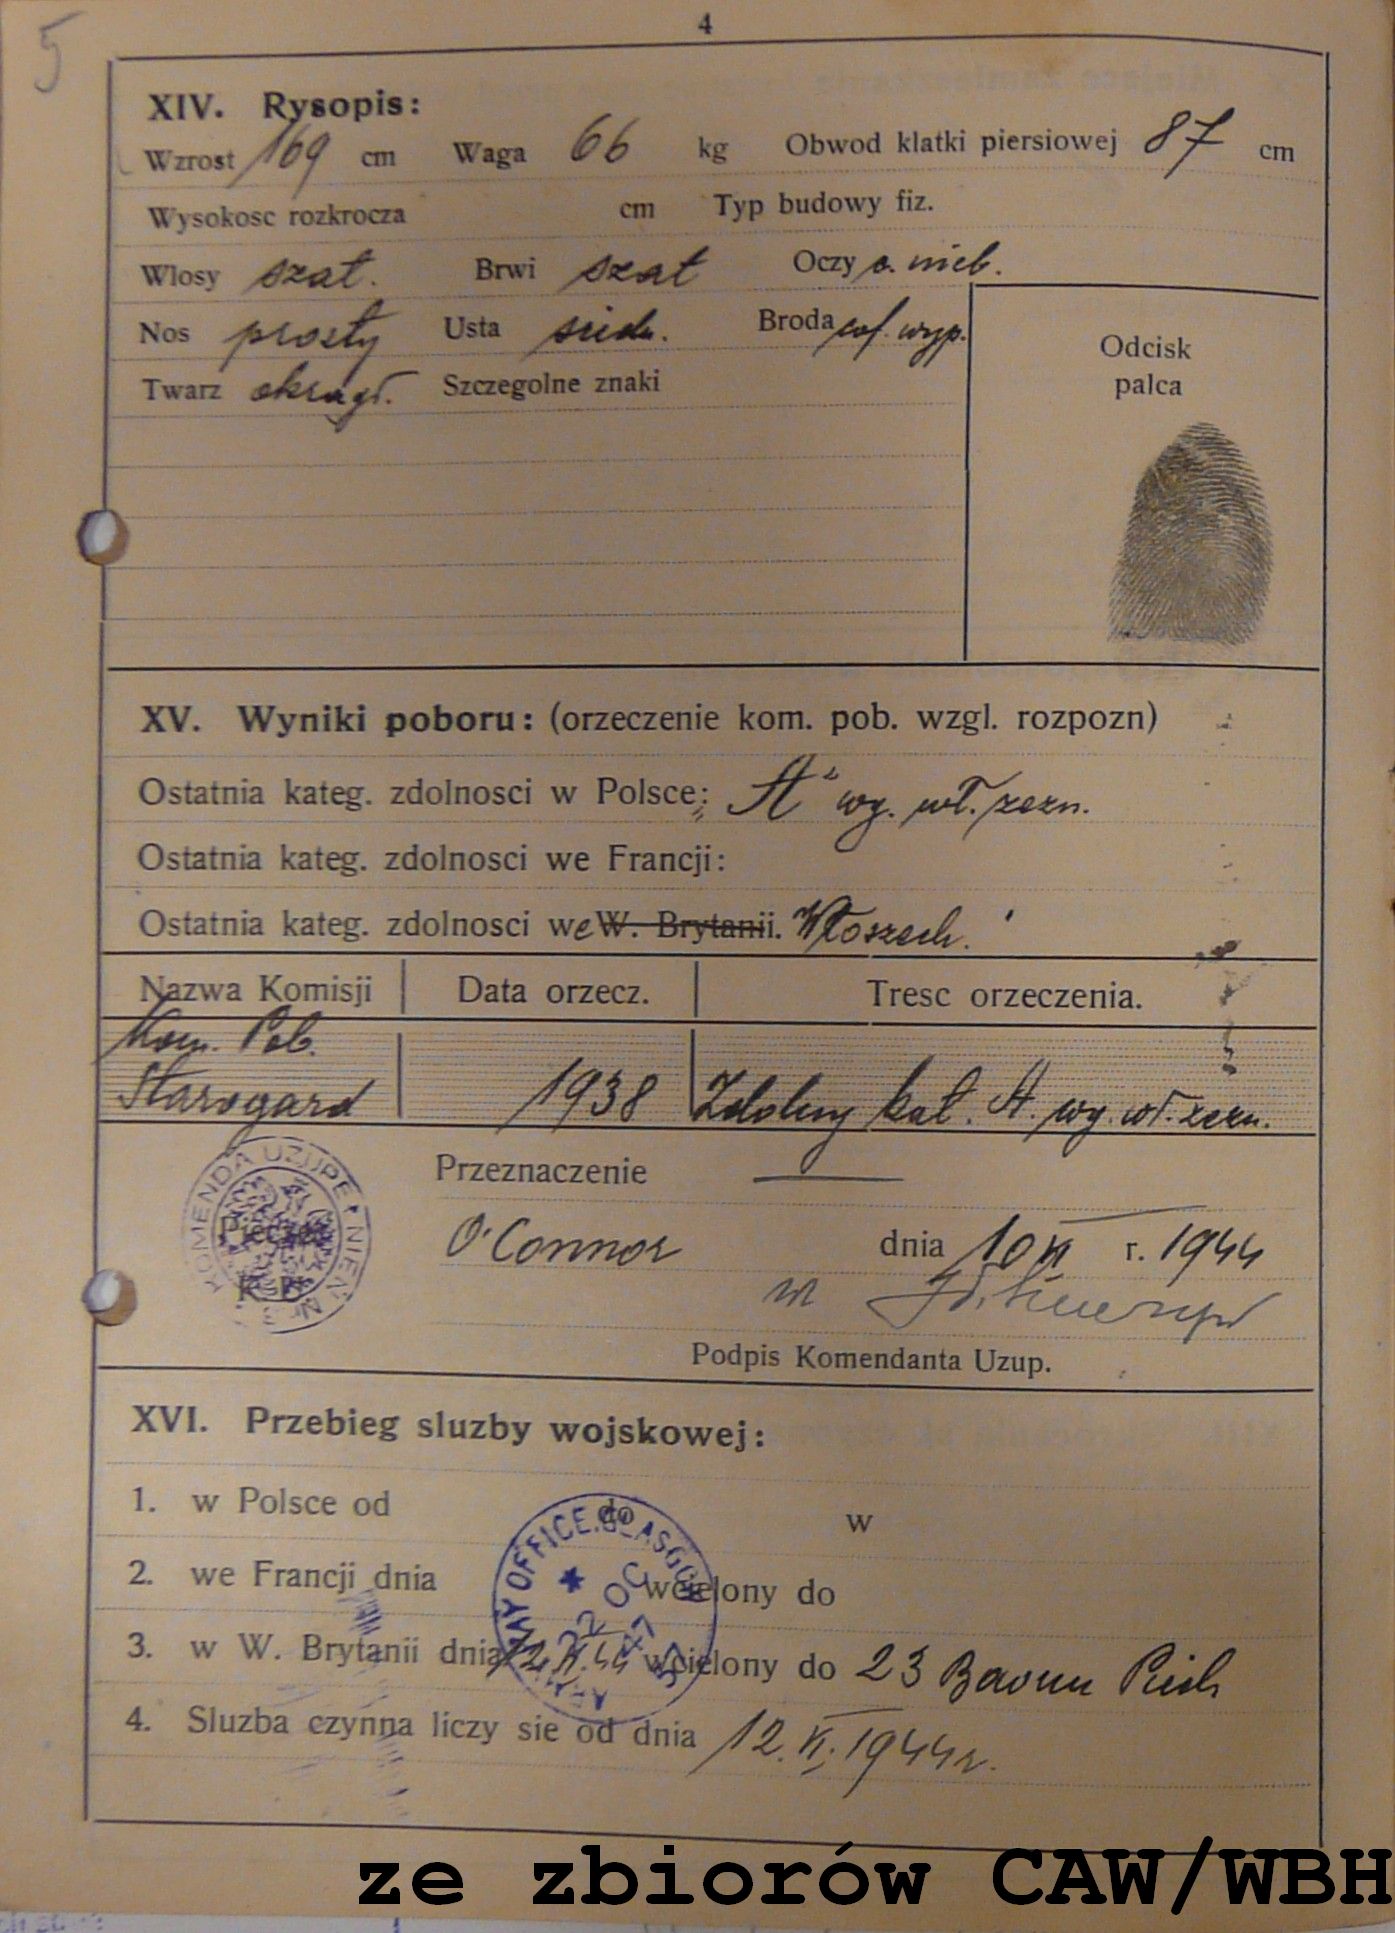 5
4
XIV. Rysopis:
Wzrost 169 cm Waga 66 kg Obwod klatki piersiowej 87 cm
Wysokosc rozkrocza cm Typ budowy fiz.
Wlosy szat. Brwi szat Oczy c. nieb.
Nos prosty Usta Broda cof. wyp.
Twarz okrągł. Szczegolne znaki
Odcisk
palca
XV. Wyniki poboru: (orzeczenie kom. pob. wzgl. rozpozn)
Ostatnia kateg. zdolnosci w Polsce: „A" wg. wł. zezn.
Ostatnia kateg. zdolnosci we Francji:
Ostatnia kateg. zdolnosci we W. Brytanii. Włoszech.
Nazwa Komisji Data orzecz. Tresc orzeczenia.
Kom. Pob.
Starogard 1938 Zdolny kat. A. wg. wł. zezn.
KOMENDA UZUPEŁNIEŃ Nr 3
Pieczęć
K. U.
Przeznaczenie
O'Connor dnia 10 XI r. 1944
Podpis Komendanta Uzup.
XVI. Przebieg sluzby wojskowej:
1. w Polsce od do w
2. we Francji dnia wcielony do
3. w W. Brytanii dnia 12.XI.44 wcielony do 23 Baonu Piech
4. Sluzba czynna liczy sie od dnia 12.XI.1944r.
ARMY PAY OFFICE. GLASGOW
22 OC
47
57
ze zbiorów CAW/WBH